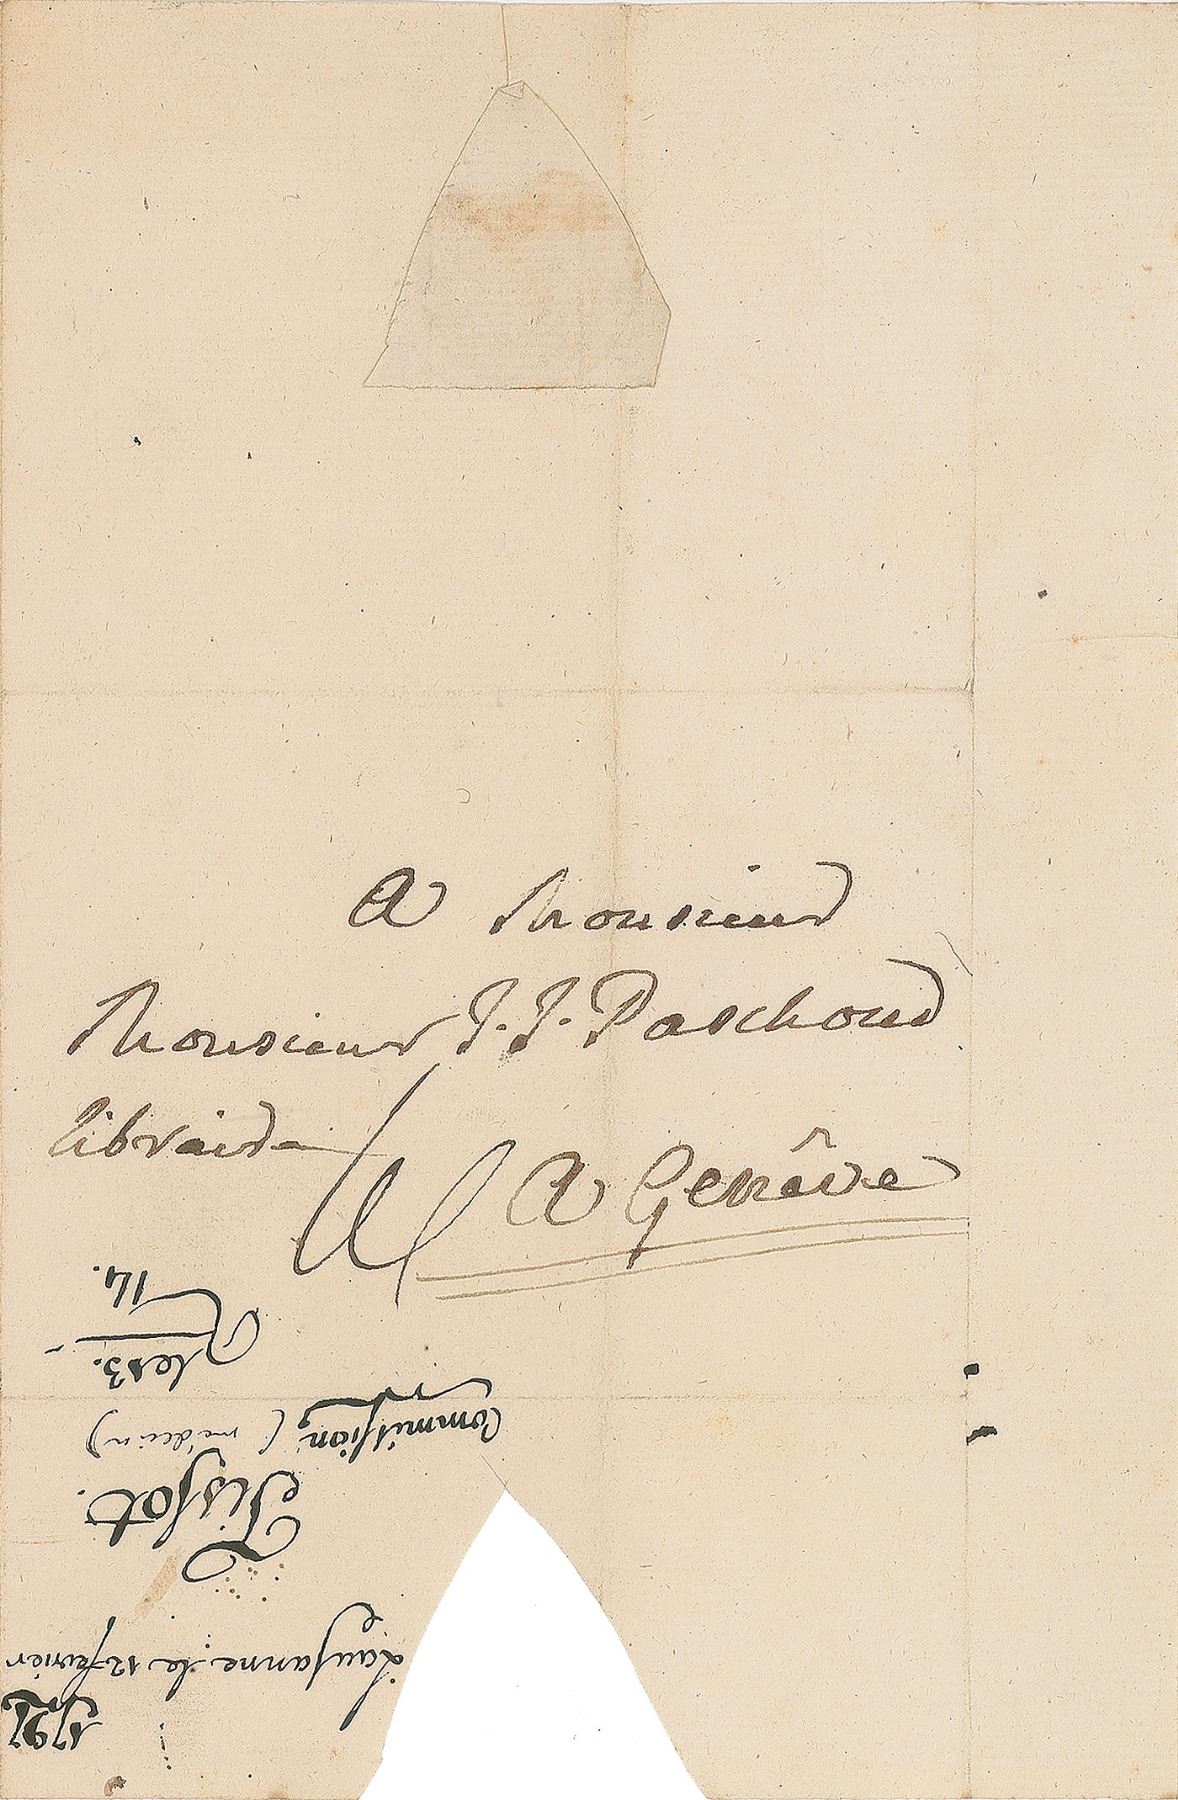 A Monsieur
Monsieur J. J. Paschoud
libraire
A Genêve
Lausanne, le 12 fevrier
Tissot.
Commission (médecin)
R
14.